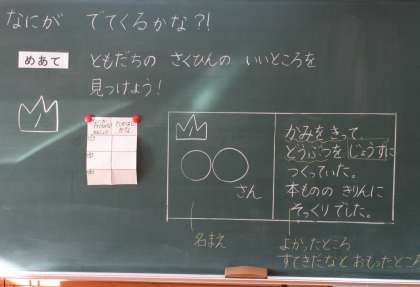 なにが でてくるかな？！
めあて
ともだちの さくひんの いいところを
見つけよう！
さん
かみをきって、
どうぶつをじょうずに
つくっていた。
本もののきりんに
そっくりでした。
名まえ
よかったところ
すてきだなとおもったところ